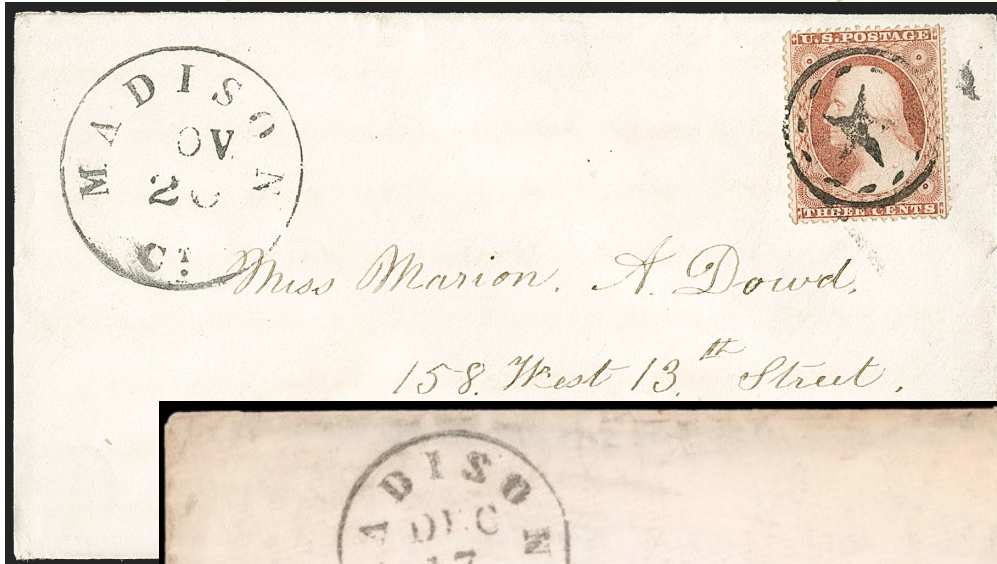 MADISON
OV
CT.
U.S. POSTAGE
THREE CENTS
Miss Marion. A. Dowd.
158. West 13.th Street.
ADISON
DEC
17